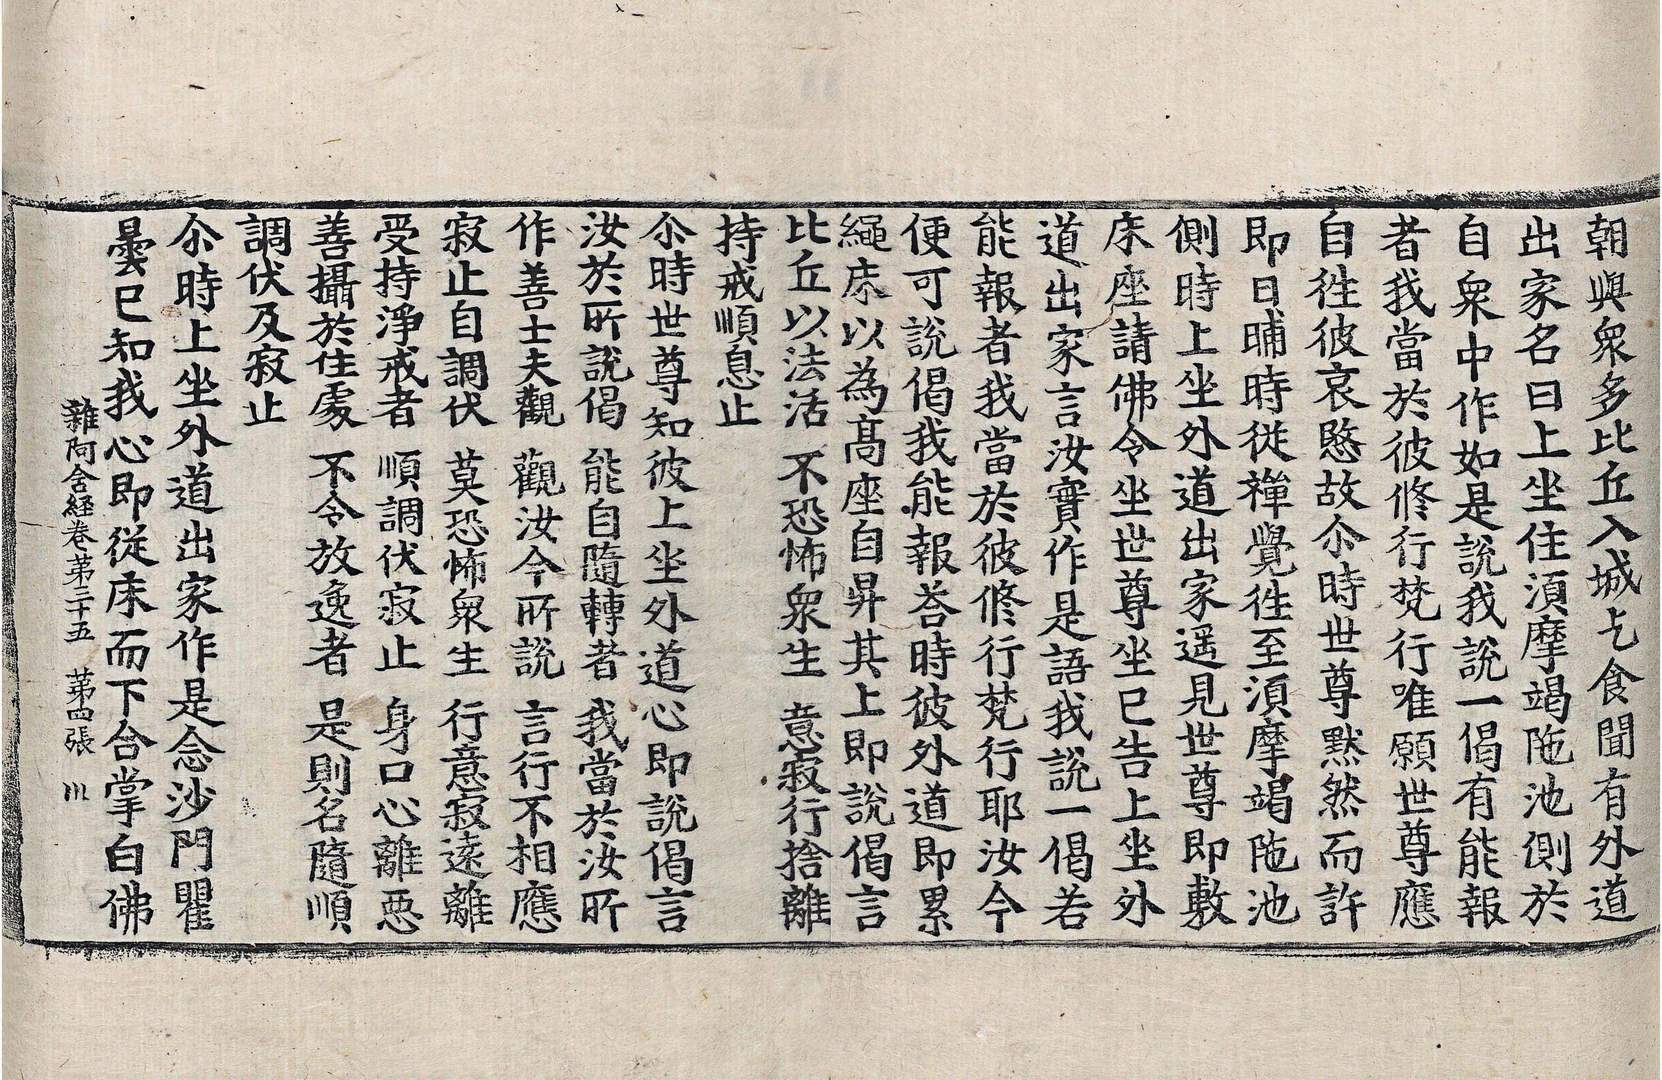 朝與衆多比丘入城乞食聞有外道
出家名曰上坐住湏摩竭陁池側於
自衆中作如是說我說一偈有能報
者我當於彼俢行梵行唯願世尊應
自徃彼哀愍故尒時世尊黙然而許
即日晡時從禪覺徃至湏摩竭陁池
側時上坐外道出家遥見世尊即敷
床座請佛令坐世尊坐已告上坐外
道出家言汝實作是語我說一偈若
能報者我當於彼俢行梵行耶汝今
便可說偈我能報荅時彼外道即累
繩床以為髙座自昇其上即說偈言
比丘以法活 不恐怖衆生 意寂行捨離
持戒順息止
尒時世尊知彼上坐外道心即說偈言
汝於所說偈 能自隨轉者 我當於汝所
作善士夫觀 觀汝今所說 言行不相應
寂止自調伏 莫恐怖衆生 行意寂遠離
受持淨戒者 順調伏寂止 身口心離惡
善攝於住處 不令放逸者 是則名隨順
調伏及寂止
尒時上坐外道出家作是念沙門瞿
曇已知我心即從床而下合掌白佛
雜阿含経卷第三十五 第四張 川